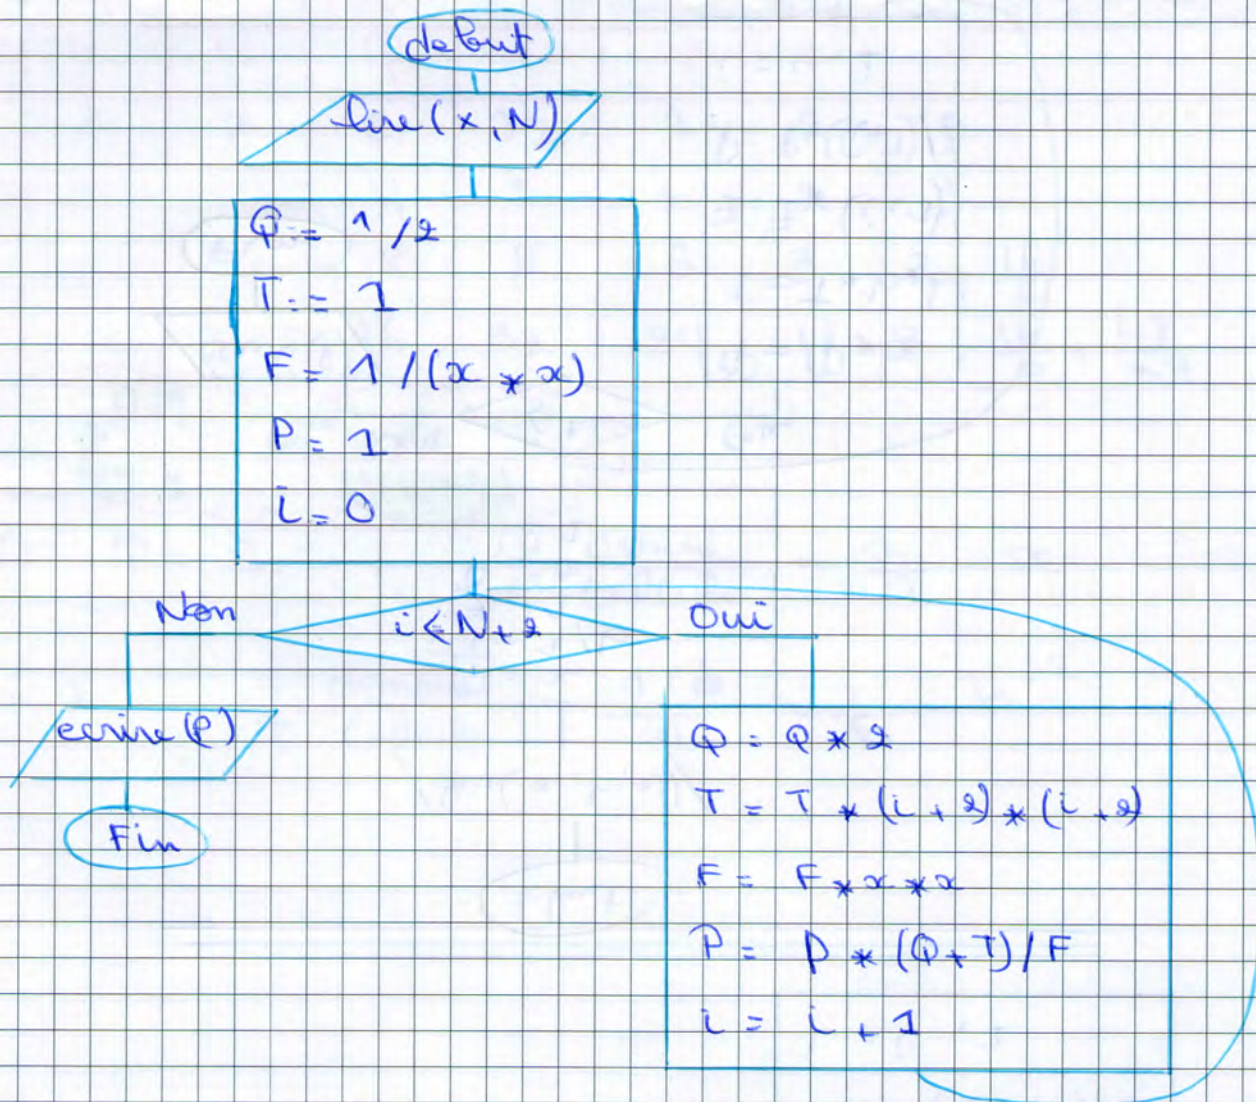 debut
lire(x,N)
Q:= 1/2
T:= 1
F= 1/(x*x)
P= 1
i=0
Non
i≤N+2
Oui
ecrire(P)
Fin
Q = Q*2
T = T*(i+2)*(i+2)
F = F*x*x
P = P*(Q+T)/F
i = i+1